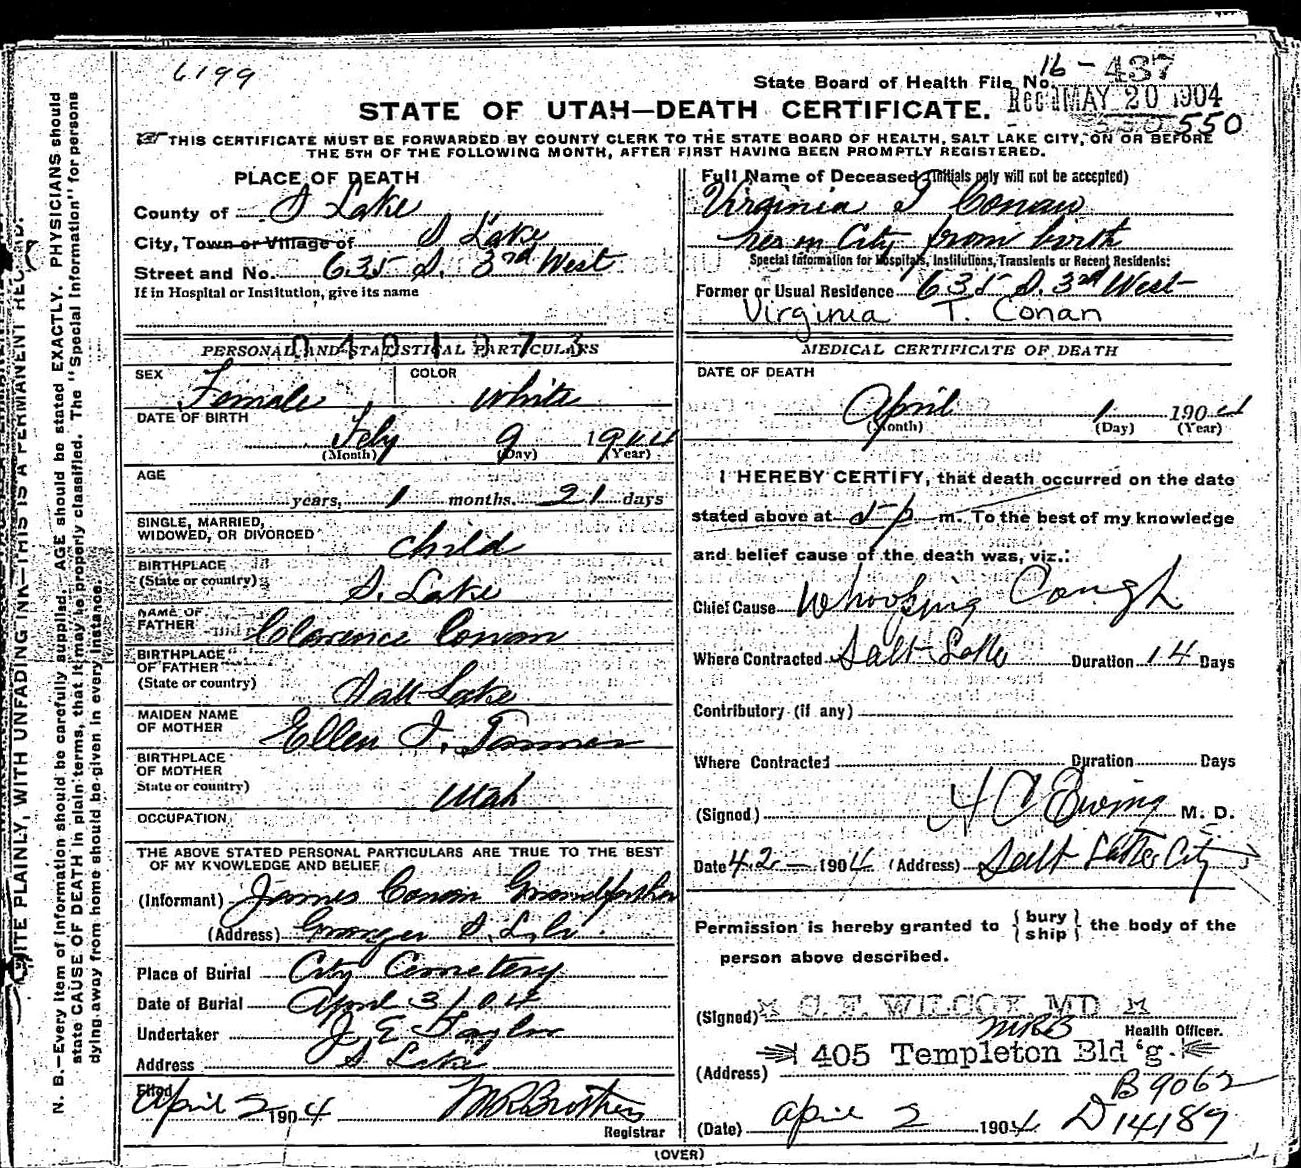 6199
State Board of Health File No. 16-437
STATE OF UTAH—DEATH CERTIFICATE.
Rec'd MAY 20 1904
550
THIS CERTIFICATE MUST BE FORWARDED BY COUNTY CLERK TO THE STATE BOARD OF HEALTH, SALT LAKE CITY, ON OR BEFORE
THE 5TH OF THE FOLLOWING MONTH, AFTER FIRST HAVING BEEN PROMPTLY REGISTERED.
PLACE OF DEATH
County of S Lake
City, Town or Village of S Lake
Street and No. 635 S. 3rd West
If in Hospital or Institution, give its name
Full Name of Deceased (Initials only will not be accepted)
Virginia T Conan
her in City from birth
Special Information for Hospitals, Institutions, Transients or Recent Residents:
Former or Usual Residence 635 S. 3rd West
Virginia T. Conan
PERSONAL AND STATISTICAL PARTICULARS
0401373
SEX Female COLOR White
DATE OF BIRTH
Feby 9 1904
(Month) (Day) (Year)
AGE
years, 1 months, 21 days
SINGLE, MARRIED,
WIDOWED, OR DIVORCED child
BIRTHPLACE
(State or country) S. Lake
NAME OF
FATHER Clarence Conan
BIRTHPLACE
OF FATHER
(State or country) Salt Lake
MAIDEN NAME
OF MOTHER Ellen J. Tanner
BIRTHPLACE
OF MOTHER
State or country) Utah
OCCUPATION
THE ABOVE STATED PERSONAL PARTICULARS ARE TRUE TO THE BEST
OF MY KNOWLEDGE AND BELIEF
(Informant) James Conan Grandfather
(Address) Granger S. L. Co.
Place of Burial City Cemetery
Date of Burial April 3 1904
Undertaker J E Taylor
Address S Lake
Filed
April 2 1904 M R Brothers
Registrar
MEDICAL CERTIFICATE OF DEATH
DATE OF DEATH
April 1 1904
(Month) (Day) (Year)
I HEREBY CERTIFY, that death occurred on the date
stated above at 5 p m. To the best of my knowledge
and belief cause of the death was, viz.:
Chief Cause Whooping Cough
Where Contracted Salt Lake Duration 14 Days
Contributory (if any)
Where Contracted Duration Days
(Signed) Ewing M. D.
Date 4-2- 1904 (Address) Salt Lake City
Permission is hereby granted to { bury
ship } the body of the
person above described.
(Signed) C. F. WILCOX, MD
MRB Health Officer.
(Address) 405 Templeton Bld'g.
B 9062
(Date) April 2 1904 D 14189
(OVER)
WRITE PLAINLY, WITH UNFADING INK—THIS IS A PERMANENT RECORD.
N. B.—Every item of information should be carefully supplied. AGE should be stated EXACTLY. PHYSICIANS should
state CAUSE OF DEATH in plain terms, that it may be properly classified. The "Special Information" for persons
dying away from home should be given in every instance.